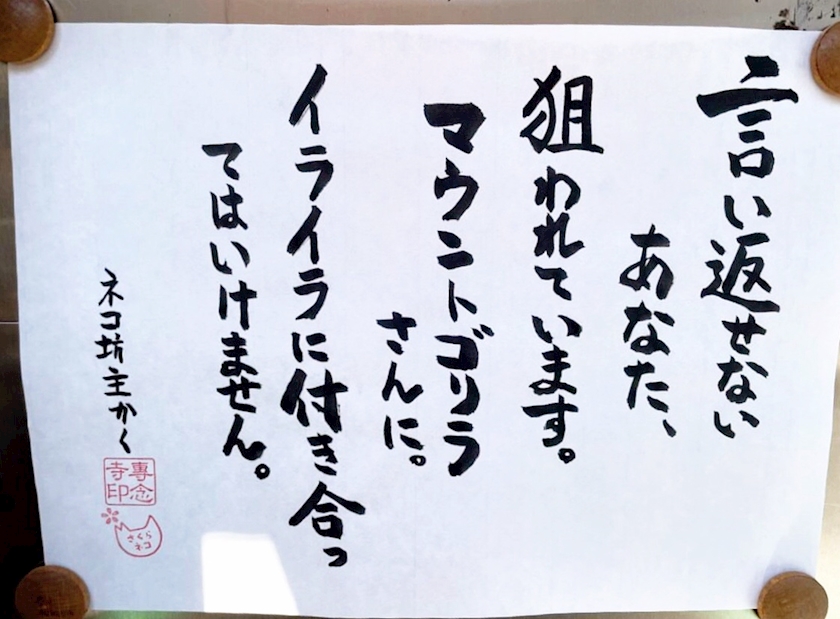 言い返せない
あなた、
狙われています。
マウントゴリラ
さんに。
イライラに付き合っ
てはいけません。
ネコ坊主かく
專念
寺印
さくら
ネコ